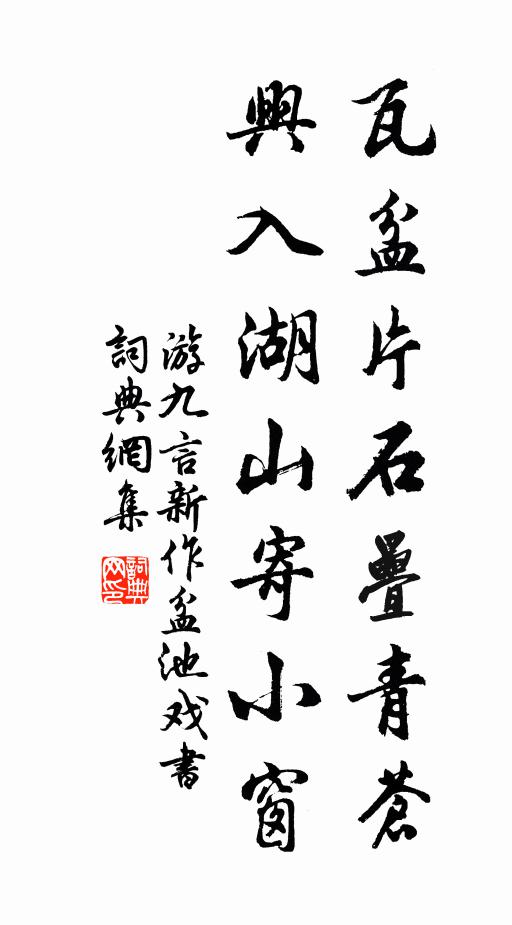 瓦盆片石疊青蒼
興入湖山寄小窗
游九言新作盆池戏書
詞典網集
詞典网印